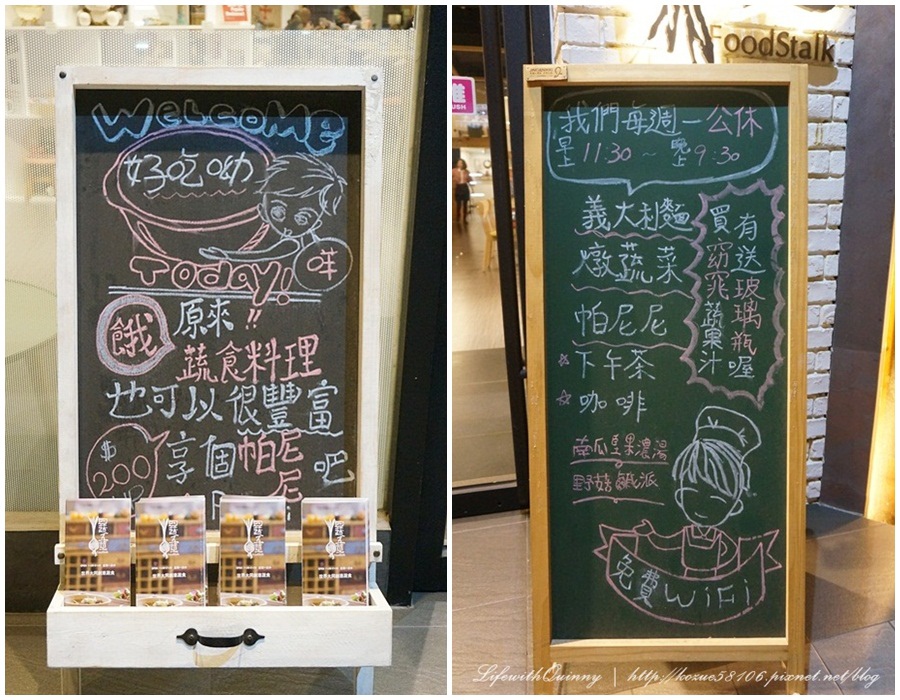 WELCOME
好吃呦
Today!
咩
!!
餓
原來
蔬食料理
也可以很豐富
$
200
享個帕尼尼吧
FoodStalk
我們每週一公休
早上 11:30 ~ 晚上 9:30
義大利麵
燉蔬菜
帕尼尼
下午茶
咖啡
買窈窕蔬果汁
有送玻璃瓶喔
南瓜堅果濃湯
野菇鹹派
免費 WiFi
LifewithQuinny | http://kozue58106.pixnet.net/blog